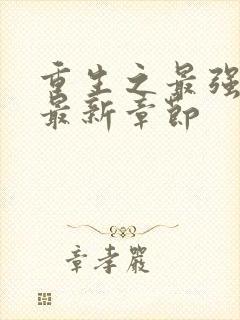 重生之最强
最新章节
章孝严